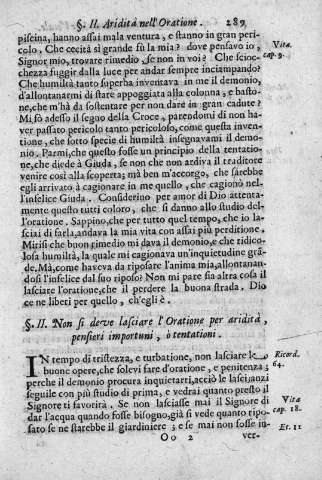 §. II. Aridità nell'Oratione. 289
piscina, hanno assai mala ventura, e stanno in gran peri-
colo. Che cecità sì grande fù la mia? dove pensavo io,
Vita
Signor mio, trovare rimedio, se non in voi? Che scioc-
cap. 9.
chezza fuggir dalla luce per andar sempre inciampando?
Che humiltà tanto superba inventava in me il demonio,
d'allontanarmi di stare appoggiata alla colonna, e basto-
ne, che m'hà da sostentare per non dare in gran cadute?
Mi fò adesso il segno della Croce, parendomi di non ha-
ver passato pericolo tanto pericoloso, come questa inven-
tione, che sotto specie di humiltà insegnavami il demo-
nio. Parmi, che questo fosse un principio della tentatio-
ne, che diede à Giuda, se non che non ardiva il traditore
venire così alla scoperta; mà ben m'accorgo, che sarebbe
egli arrivato à cagionare in me quello, che cagionò nel-
l'infelice Giuda. Considerino per amor di Dio attenta-
mente questo tutti coloro, che si danno allo studio del-
l'oratione. Sappino, che per tutto quel tempo, che io la-
sciai di farla, andava la mia vita con assai più perditione.
Mirisi che buon rimedio mi dava il demonio, e che ridico-
losa humiltà, la quale mi cagionava un'inquietudine grã-
de. Mà, come haveva da riposare l'anima mia, allontanan-
dosi l'infelice dal suo riposo? Non mi pare sia altra cosa il
lasciare l'oratione, che il perdere la buona strada. Dio
ce ne liberi per quello, ch'egli è.
§. II. Non si deve lasciare l'Oratione per aridità,
pensieri importuni, ò tentationi.
IN tempo di tristezza, e turbatione, non lasciare le
Ricord.
buone opere, che solevi fare d'oratione, e penitenza;
64.
perche il demonio procura inquietarti, acciò le lasci, anzi
seguile con più studio di prima, e vedrai quanto presto il
Signore ti favorità. Se non lasciasse mai il Signore di
Vita
dar l'acqua quando fosse bisogno, già si vede quanto ripo-
cap. 18.
sato se ne starebbe il giardiniere; e se mai non fosse in-
Et. 11
Oo 2
ver-